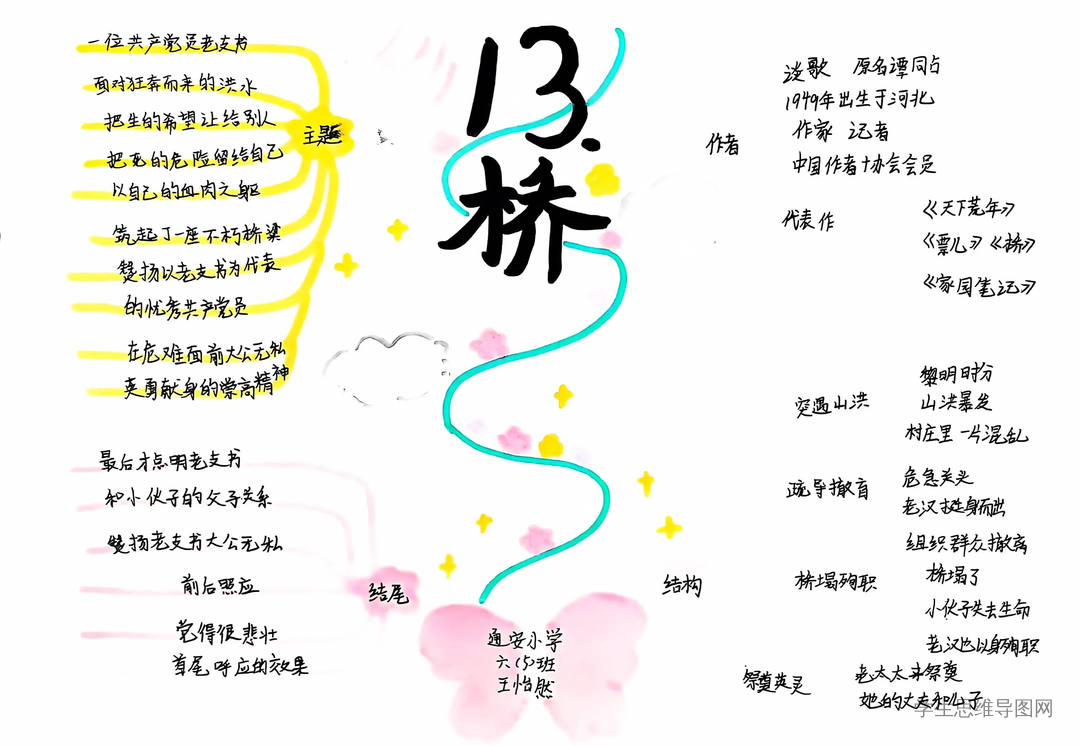 13.
桥
一位共产党员老支书
面对狂奔而来的洪水
把生的希望让给别人
把死的危险留给自己
以自己的血肉之躯
筑起了一座不朽桥梁
赞扬以老支书为代表
的优秀共产党员
在危难面前大公无私
英勇献身的崇高精神
主题
最后才点明老支书
和小伙子的父子关系
赞扬老支书大公无私
前后照应
觉得很悲壮
首尾呼应的效果
结尾
作者
谈歌 原名谭同占
1949年出生于河北
作家 记者
中国作者协会会员
代表作
《天下荒年》
《票儿》《桥》
《家园笔记》
结构
突遇山洪
黎明时分
山洪暴发
村庄里一片混乱
疏导撤离
危急关头
老汉挺身而出
组织群众撤离
桥塌殉职
桥塌了
小伙子失去生命
老汉也以身殉职
祭奠英灵
老太太来祭奠
她的丈夫和儿子
通安小学
六(5)班
王怡然
学生思维导图网